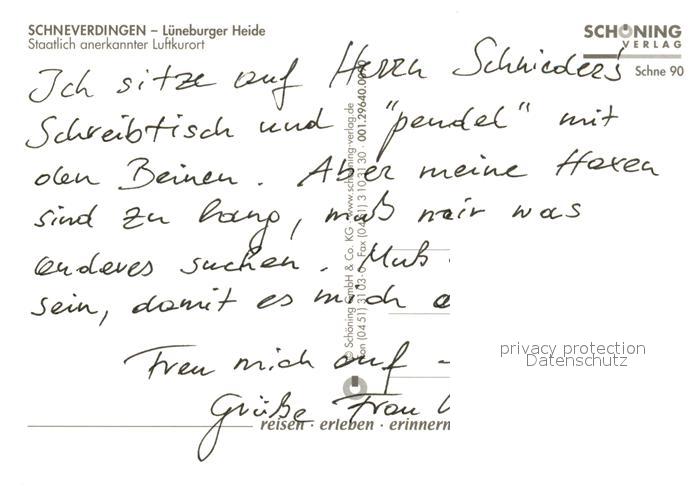 SCHNEVERDINGEN – Lüneburger Heide
Staatlich anerkannter Luftkurort
SCHÖNING
VERLAG
Schne 90
Ich sitze auf Herrn Schnieder's
Schreibtisch und "pendel" mit
den Beinen. Aber meine Haxen
sind zu lang, muß mir was
anderes suchen. Muß
sein, damit es mich
Freu mich auf -
Grüße Frau
© Schöning GmbH & Co. KG · www.schoening-verlag.de
(04 51) 31 03-0 · Fax (04 51) 3 10 31 30 · 001.29640.
reisen · erleben · erinnern
privacy protection
Datenschutz